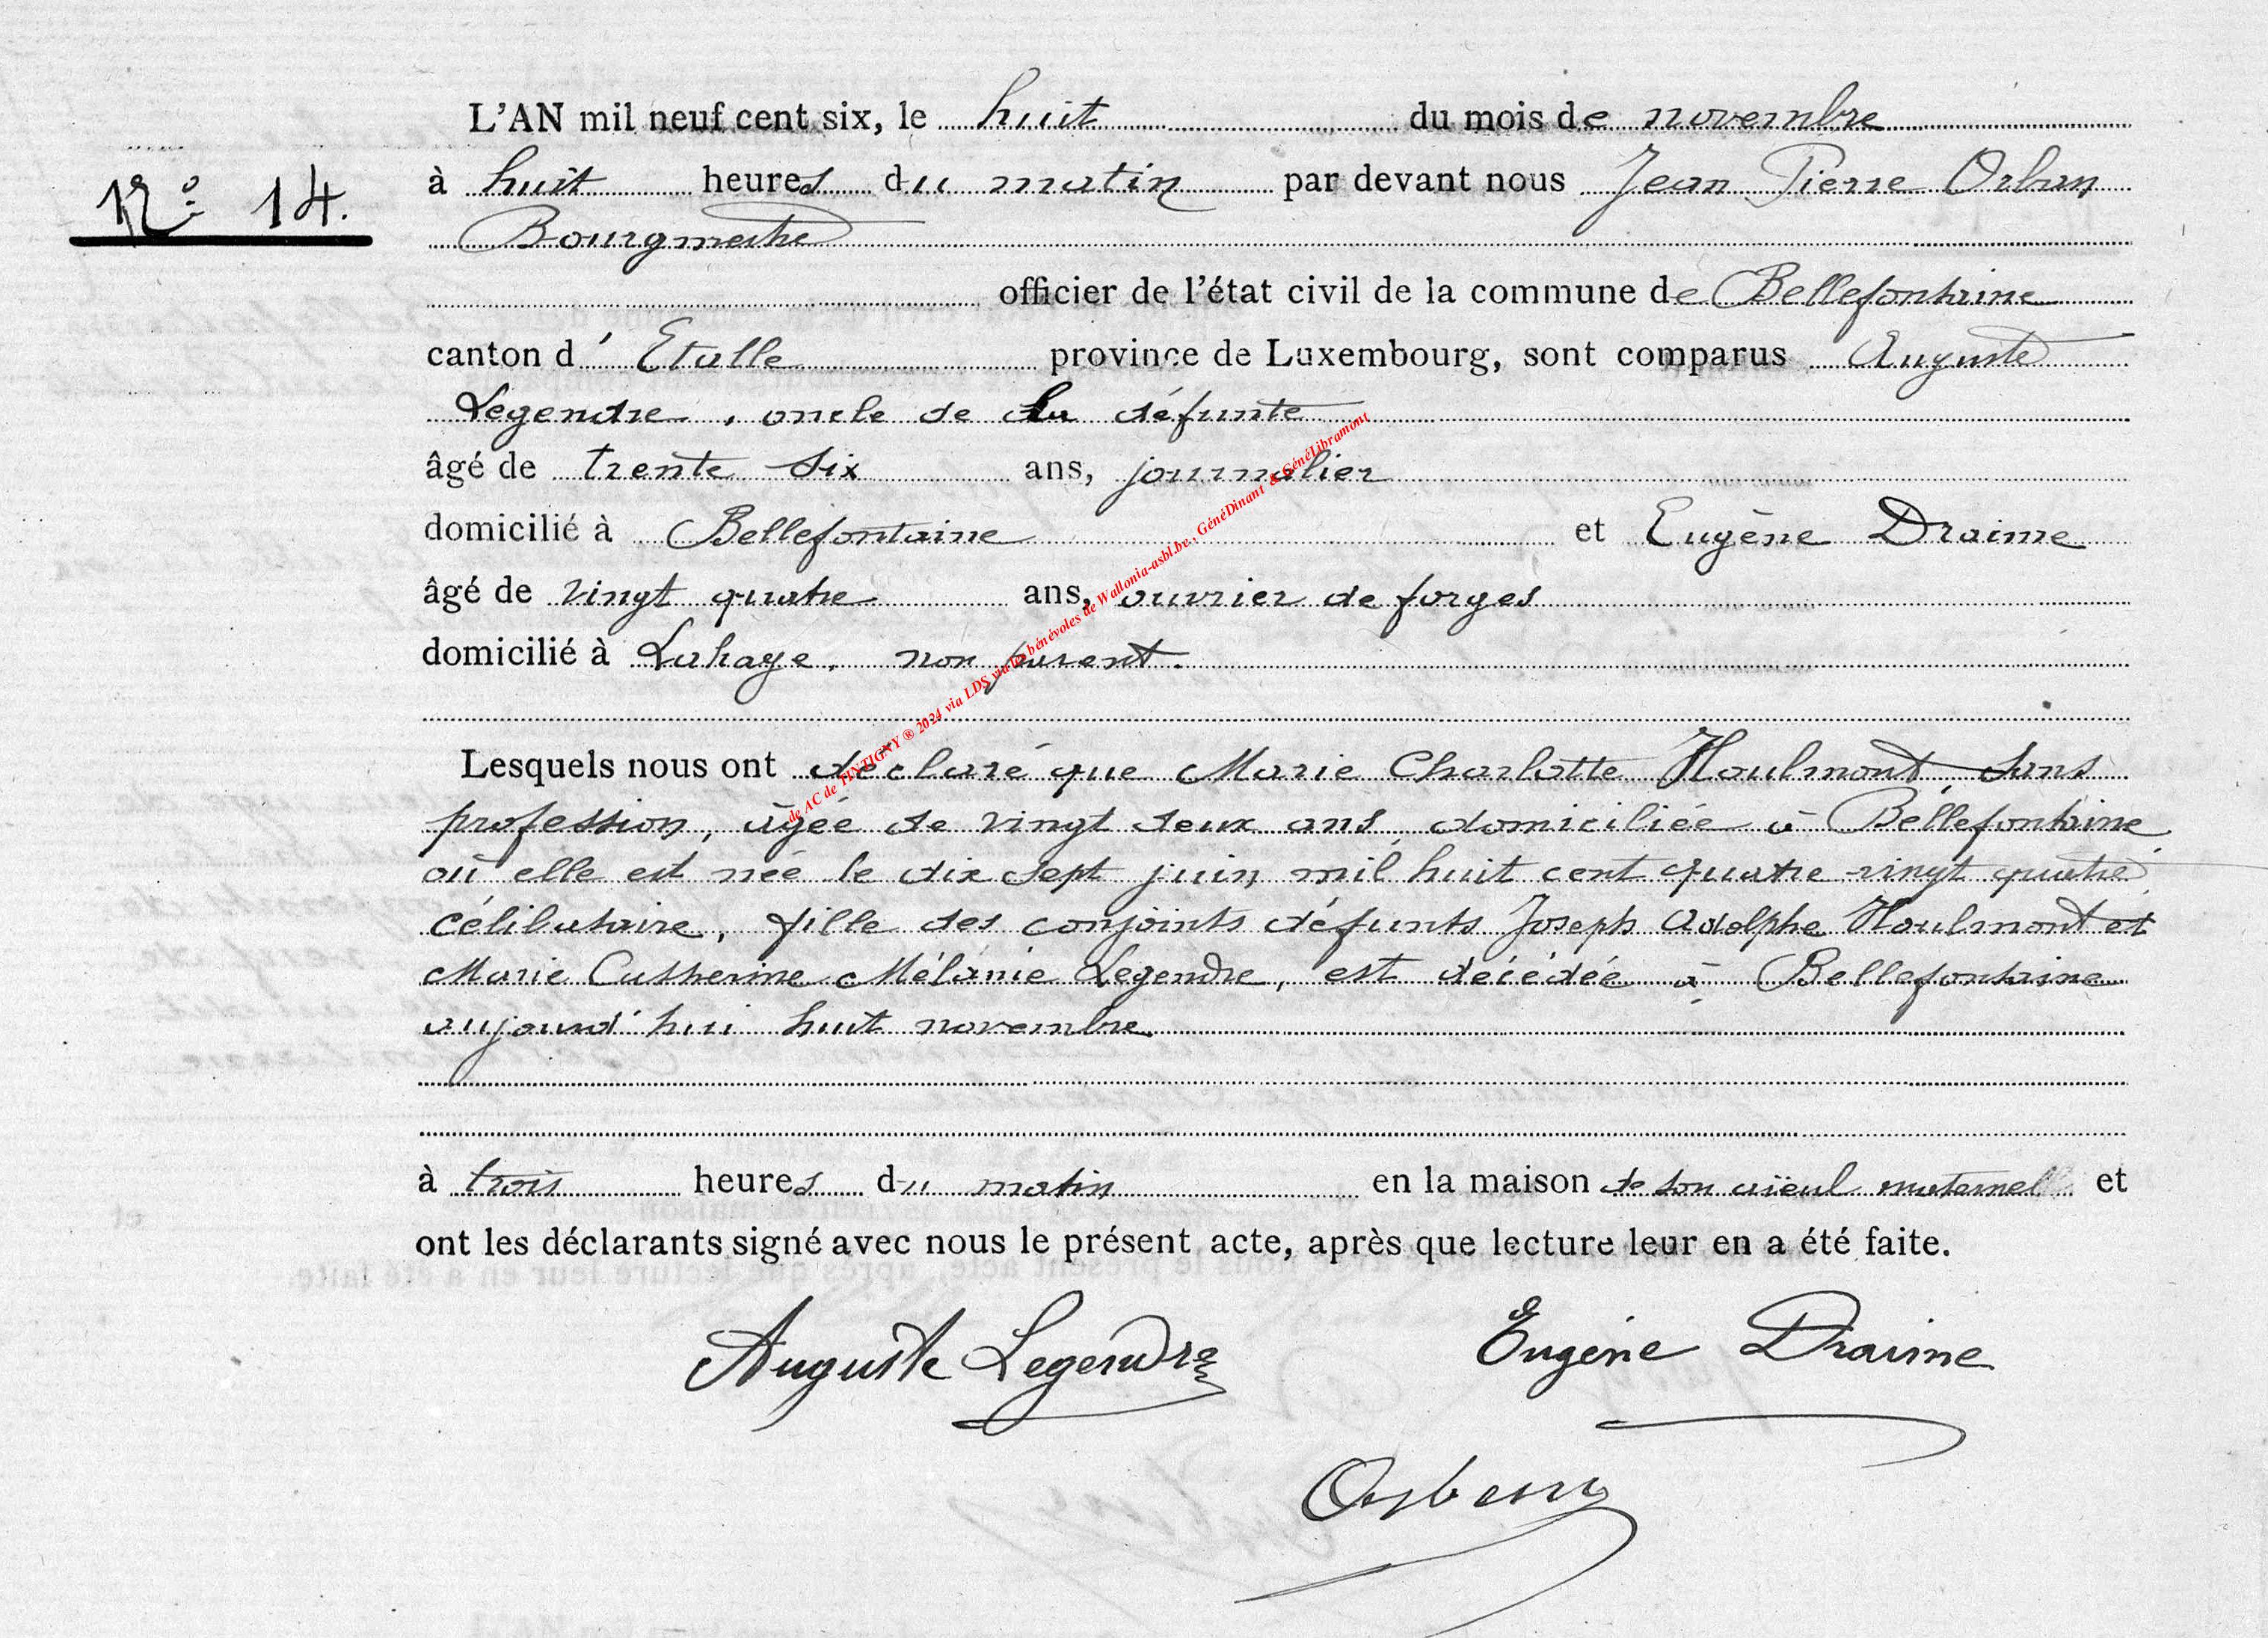 L'AN mil neuf cent six, le huit du mois de novembre
N° 14.
à huit heures du matin par devant nous Jean Pierre Orban
Bourgmestre
officier de l'état civil de la commune de Bellefontaine
canton d'Etalle province de Luxembourg, sont comparus Auguste
Legendre, oncle de la défunte
âgé de trente six ans, journalier
domicilié à Bellefontaine et Eugène Draime
âgé de vingt quatre ans, ouvrier de forges
domicilié à Lahage, non parent.
de AC de TINTIGNY ® 2024 via LDS, via les bénévoles de Wallonia-asbl.be, GénéDinant & GénéLibramont
Lesquels nous ont déclaré que Marie Charlotte Houlmont, sans
profession, âgée de vingt deux ans, domiciliée à Bellefontaine,
où elle est née le dix sept juin mil huit cent quatre vingt quatre,
célibataire, fille des conjoints défunts Joseph Adolphe Houlmont et
Marie Catherine Mélanie Legendre, est décédée à Bellefontaine
aujourd'hui huit novembre
à trois heures du matin en la maison de son aïeul maternel et
ont les déclarants signé avec nous le présent acte, après que lecture leur en a été faite.
Auguste Legendre Eugène Draime
Orban